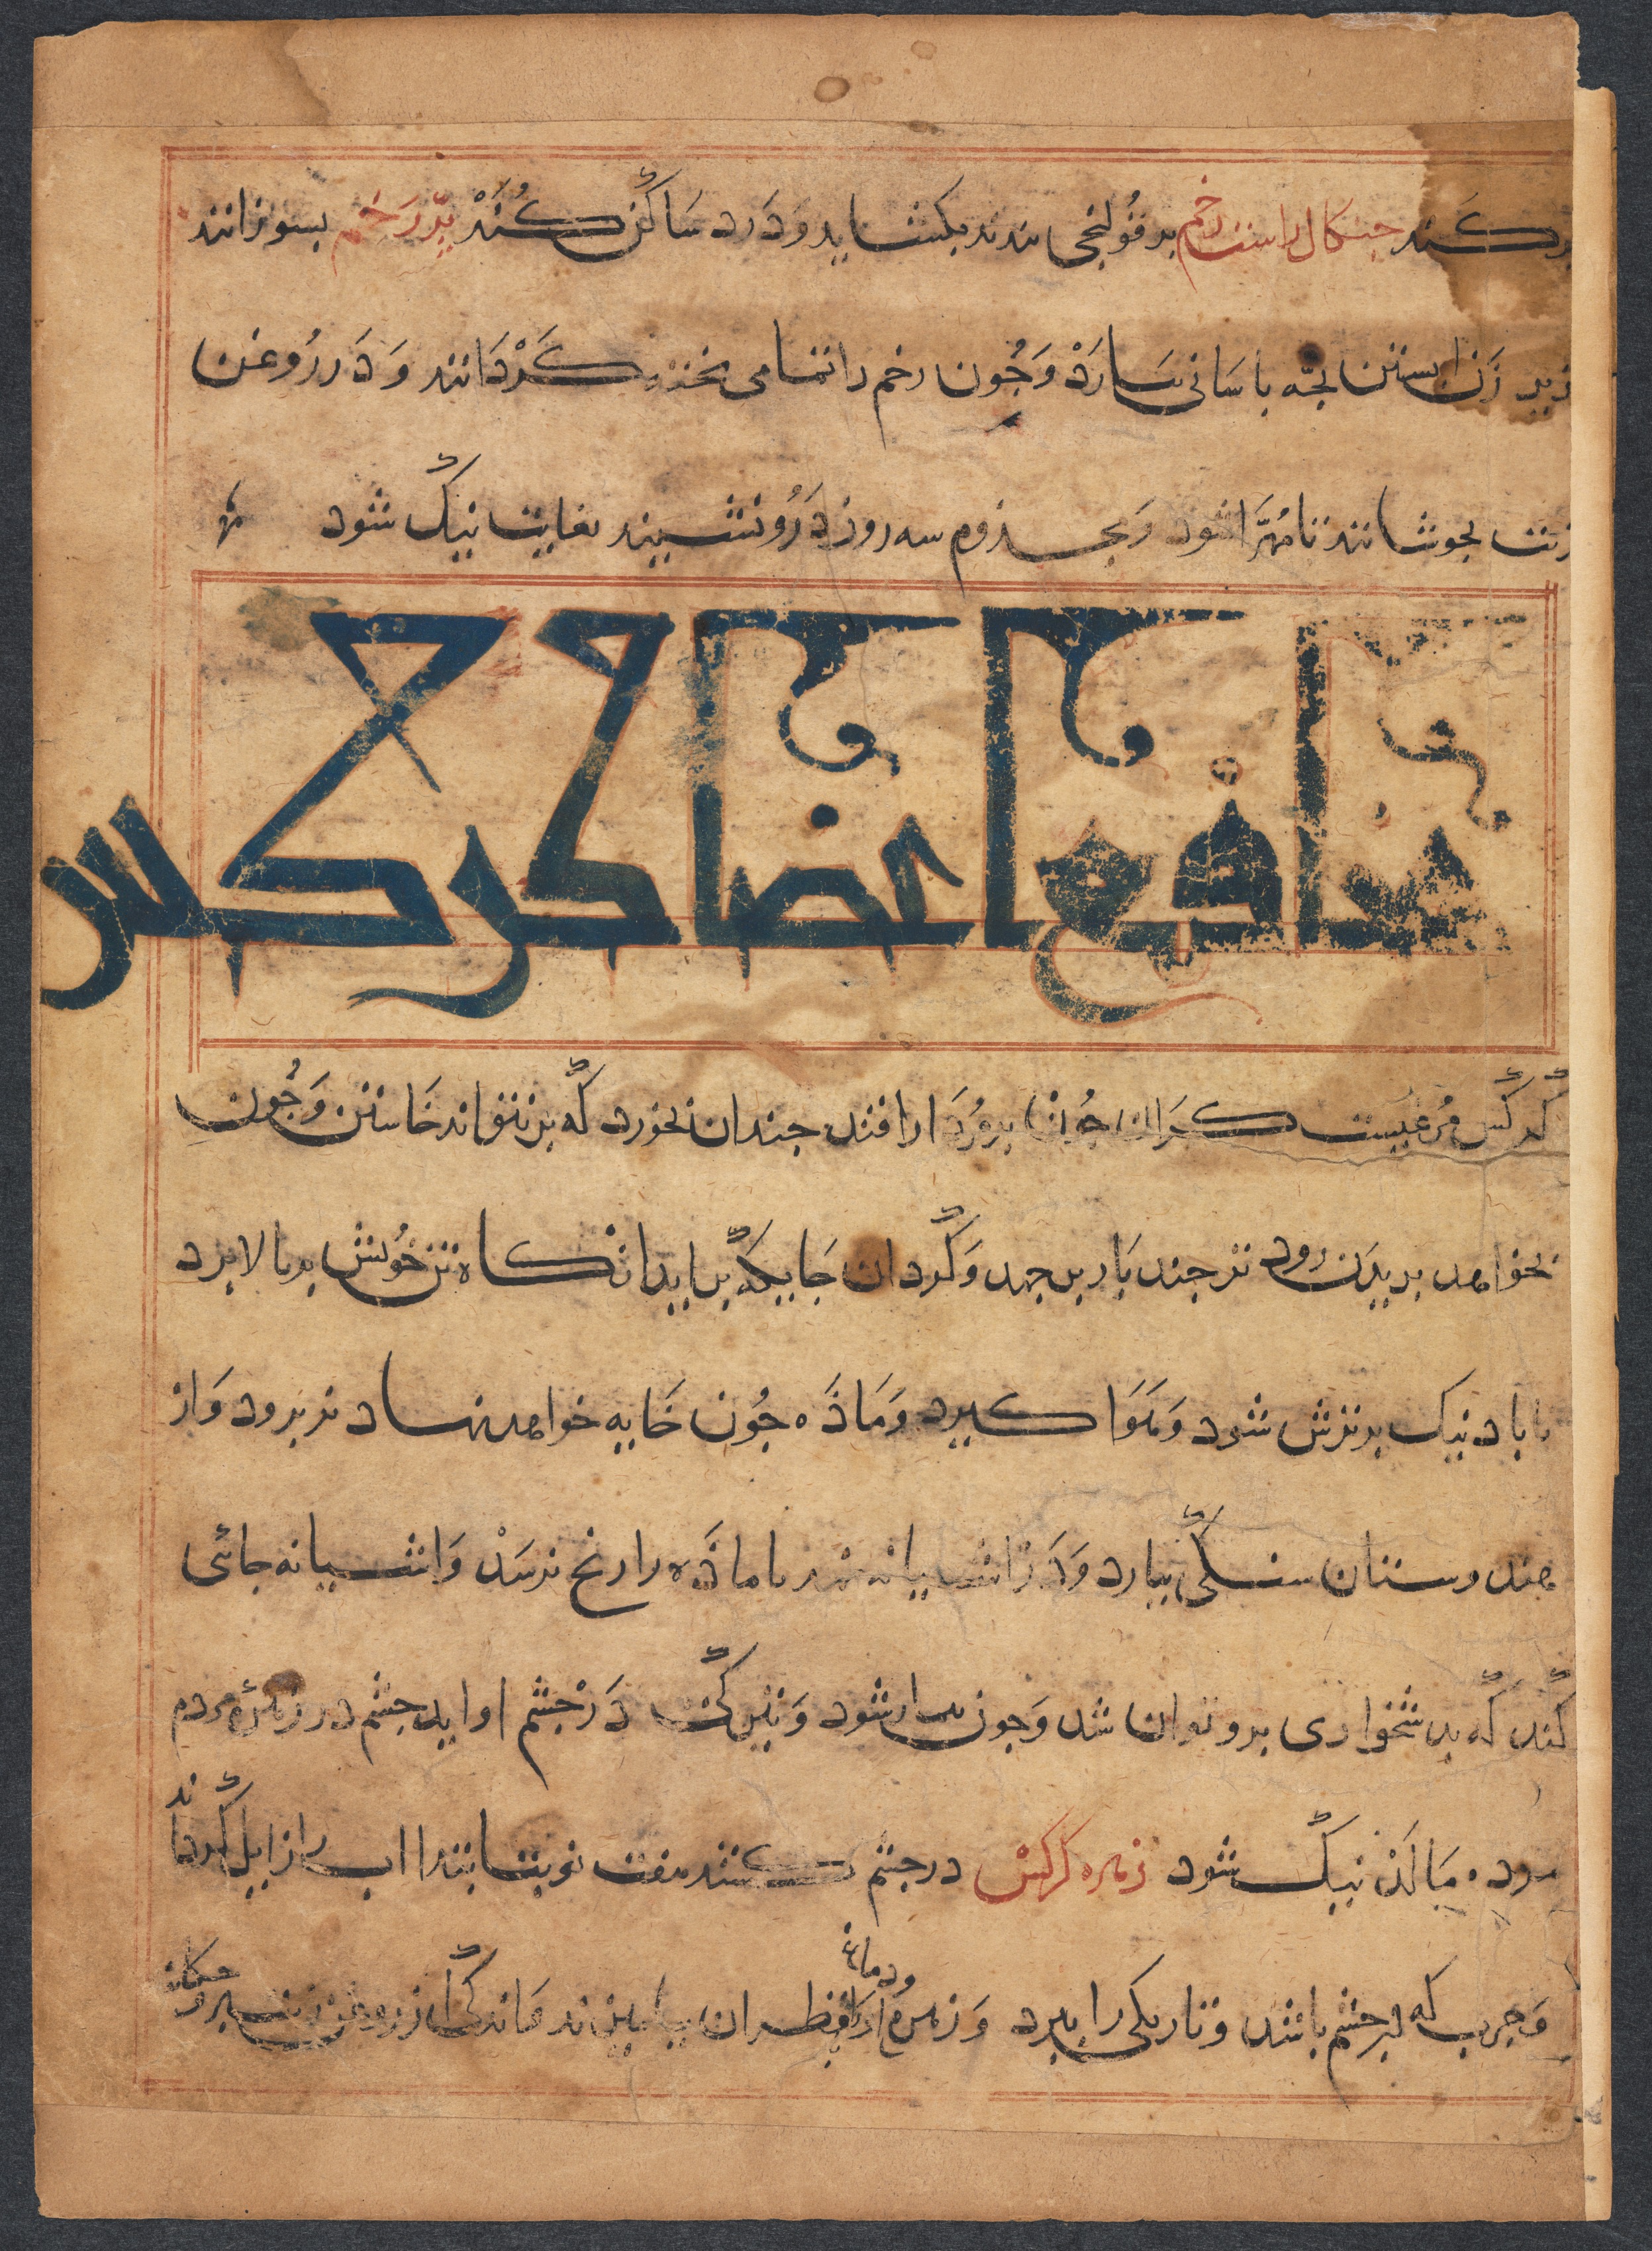 کند چنگال راست رخم بر قولنجی بندند بکشاید و درد ساکن کند پر رخم بسوزانند
زیر زن ابستن بچه باسانی بیارد و چون رخم را بتمامی پخته کردانند و در روغن
زیت بجوشانند تا مهرا شود و مجذوم سه روز درو نشیند بغایت نیک شود
منافع اعضا کرکس
کرکس مرغیست کران چون بر مردار افتد چندان بخورد که برنتواند خاستن و چون
بخواهد پریدن رود تر چند بار بر جهد و کردان جاییکه براید انکاه تن خویش بر بالا برد
تا باد نیک بر تنزش شود و هوا کیرد و ماده چون خایه خواهد نهاد نر برود و از
هندوستان سنکی بیارد و در اشیانه نهد تا ماده را رنج نرسد و اشیانه جائی
کند که بدشخواری برو توان شد و چون بیمار شود و تیرکی در چشم او اید چشم در زهره مردم
مرده مالد نیک شود زهره کرکس در چشم کشند هفت نوبت ابتدا اب را زایل کرداند
و جرب که در چشم باشد و تاریکی را ببرد و زهره او با قطران
ودماغ